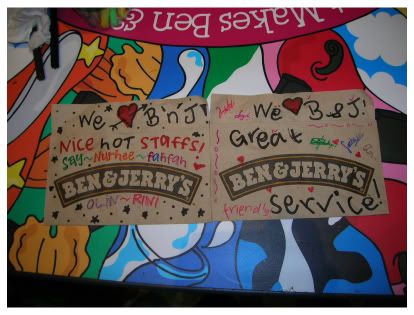 Makes Ben &
We ❤ BnJ!
NICE HOT STAFFS!
SAY~ Nurhee~ fahfah
BEN & JERRY'S
OWIN~ RINI
We ❤ B&J!
Great
BEN & JERRY'S
friendly
service!